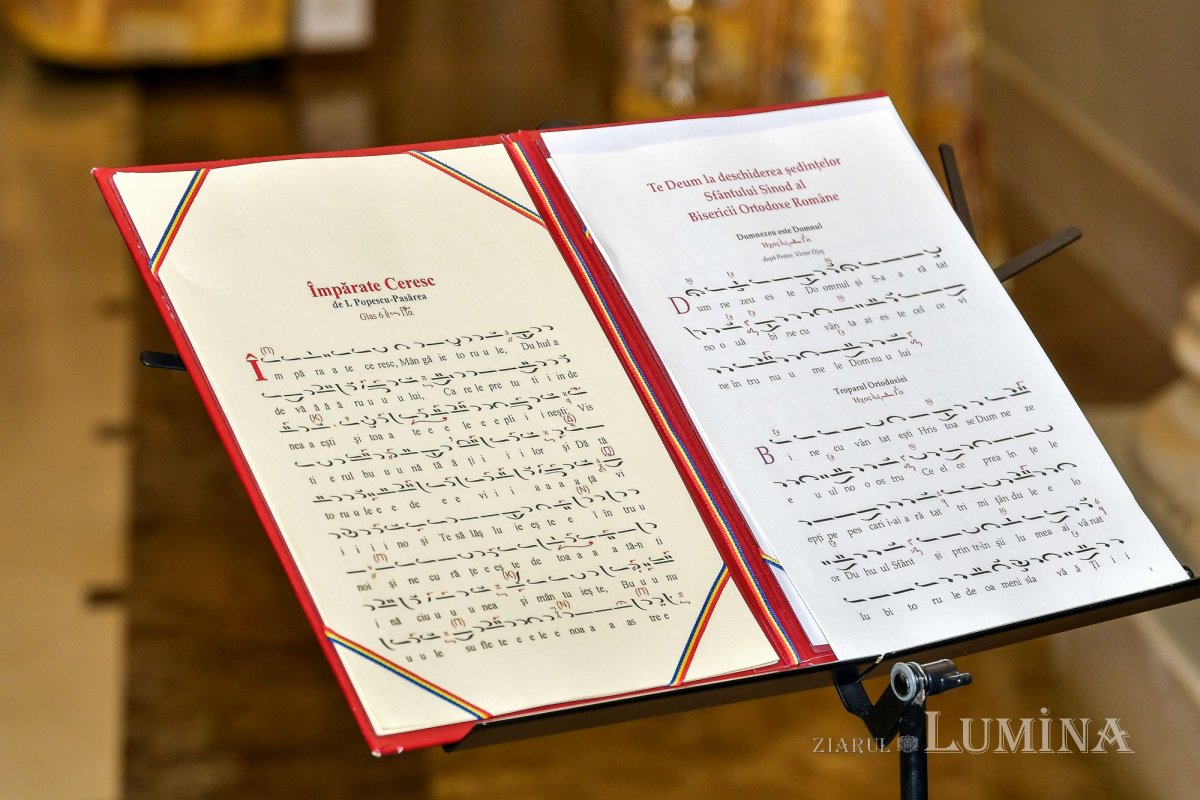 Împărate Ceresc
de I. Popescu-Pasărea
Glas 6
Îm pă ra a te ce resc, Mân gâ ie to ru u le, Du hul a
de vă ă ă ă ru u u lui, Ca re le pre tu ti i in de
nea a ești și toa a te e e le e e pli i i nești; Vis
ti e rul bu u u nă tă ă ți i i i lor și Dă tă
to ru u le e e de e e vi i i a a a a ță vi
i i i no și Te să lăș lu ie eș te e i în tru u
noi și ne cu ră țe e eș te de toa a a a tă-n ti
i nă ciu u u nea și mân tu ieș te, Bu u u nu
u u le su fle te e e le e noa a a as tre e
Te Deum la deschiderea ședințelor
Sfântului Sinod al
Bisericii Ortodoxe Române
Dumnezeu este Domnul
după Protos. Victor Ojog
Dum ne zeu es te Do omnul și S-a a ră tat
no o uă bi ne cu vân ta at es te cel ce vi
ne în tru nu u me le Dom nu u lui
Troparul Ortodoxiei
Bi i ne cu vân tat ești Hris toa se Dum ne ze
e u ul no o os tru Ce el ce prea în țe le
epți pe pes cari i-ai a ră tat tri mi țân du le e lo
or Du hu ul Sfânt și prin tr-în șii lu mea ai vâ nat
Iu bi to ru le de oa meni sla vă ă Ți i i
ZIARUL LUMINA